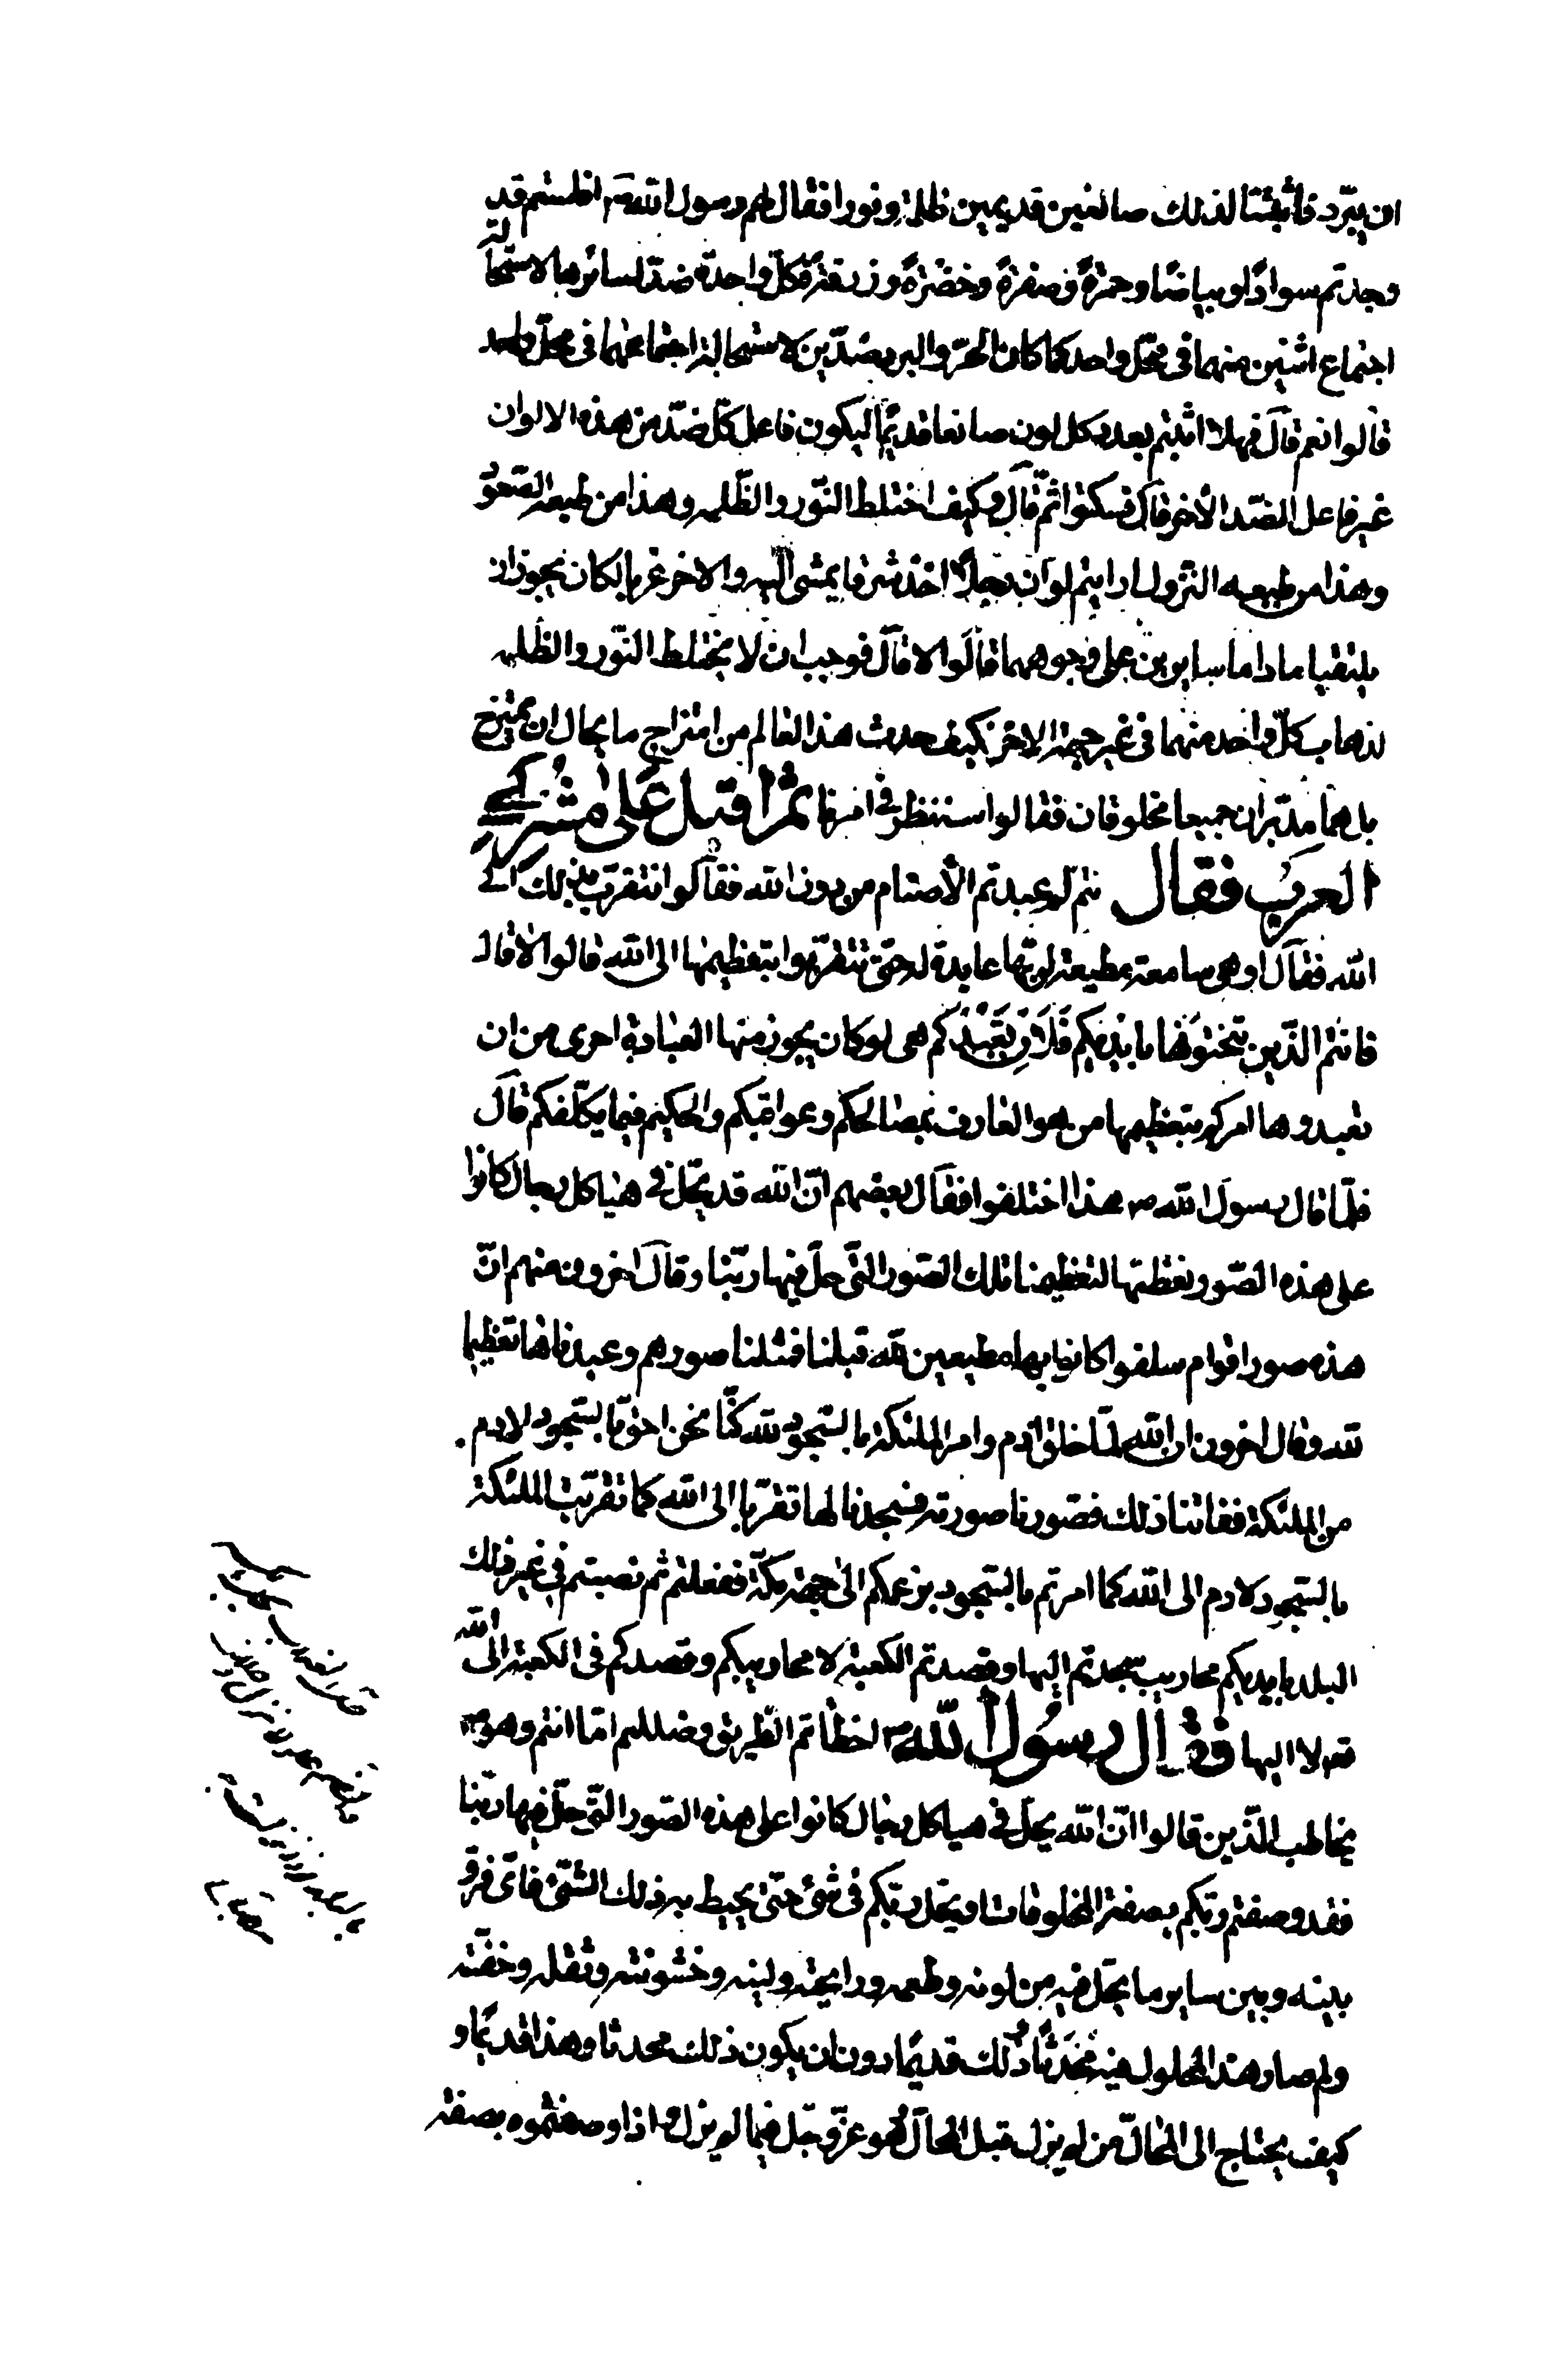 ان يبرد فأثبتنا لذلك صانعين قديمين ظلمة ونورا فقال لهم رسول الله ص افلستم قد
وجدتم سوادًا وبياضًا وحمرةً وصفرةً وخضرةً وزرقةً فكلّ واحدة ضدّ لسائرها لاستحالة
اجتماع اثنين منهما فى محلّ واحد كما كان الحرّ والبرد ضدّين لاستحالة اجتماعهما فى محلّ واحد
قالوا نعم قال فهلا اثبتم بعدد كل لون صانعا قديمًا ليكون فاعل كلّ ضدّ من هذه الالوان
غير فاعل الضدّ الأخر قال فسكتوا ثمّ قال وكيف اختلط النّور والظّلمه وهذا من طبعه الصّعود
وهذا من طبعه النّزول ارايتم لو ان رجلاً اخذ شرقا يمشى اليه والاخر غربا كان يجوز ان
يلتقيا ماداما سايرين على وجوههما قالوا لا قال فوجب ان لا يختلط النّور والظّلمه
لذهاب كلّ واحد منهما فى غير جهة الاخر فكيف حدث هذا العالم من امتزاج ما محال ان يمتزج
بل هما مدبّران جميعا مخلوقان فقالوا سننظر فى امرنا ثم اقبل على مشركے
العرب فقال فلم عبدتم الأصنام من دون الله فقالوا نتقرّب بذلك الى
الله فقال او هى سامعة مطيعة لربّها عابدة له حتى تتقرّبوا بتعظيمها الى الله قالوا لا قال
فانتم الّذين نحتموها بايديكم فَلَاَنْ تَعَبْدَكم هى لو كان يجوز منها العبادة احرى من ان
تعبدوها اذا لم يكن امركم بتعظيمها من هو العارف بمصالحكم وعواقبكم والحكيم فيما يكلّفكم قال
فلمّا قال رسول الله ص هذا اختلفوا فقال بعضهم انّ الله قد يحلّ فى هياكل رجال كانوا
على هذه الصّور نعظّمها لتعظيمنا تلك الصّور الّتى حلّ فيها ربّنا وقال اخرون منهم انّ
هذه صور اقوام سلفوا كانوا بها مطيعين لله قبلنا فمثلنا صورهم وعبدناها تعظيما
لله وقال اخرون ان الله لمّا خلق آدم وامر الملئكة بالسّجود لله كنّا نحن احقّ بالسّجود لادم
من الملئكة ففاتنا ذلك فصّورنا صورته فسجدنا لها تقرّبا الى الله كما تقربت الملئكة
بالسّجود لادم الى الله كما امرتم بالسّجود بزعمكم الى جهة مكّة ففعلتم ثم نصبتم فى غير ذلك
البلد بايديكم محاريب سجدتم اليها وقصدتم الكعبة لا محاريبكم وقصدكم فى الكعبة الى الله
لا اليها فقال رسول الله ص اخطأتم الطّريق وضللتم امّا انتم وهو ص
يخاطب الّذين قالوا انّ الله يحلّ فى هياكل رجال كانوا على هذه الصّور الّتى حلّ فيها ربّنا
فقد وصفتم ربّكم بصفة المخلوقات او يحلّ ربّكم فى شئ حتّى يحيط به ذلك الشّئ فاىّ فرق
بينه وبين ساير ما يحلّ فيه من لونه وطعمه ورايحته ولينه وخشونته وثقله وخفّته
ولم صار هذا المحلول فيه محدَثًا وذلك قديمًا دون ان يكون ذلك محدثا وهذا قديمًا و
كيف يحتاج الى المحالّ من لم يزل قبل المحالّ وهو عزّ وجلّ فيما لم يزل واذا وصفتموه بصفة